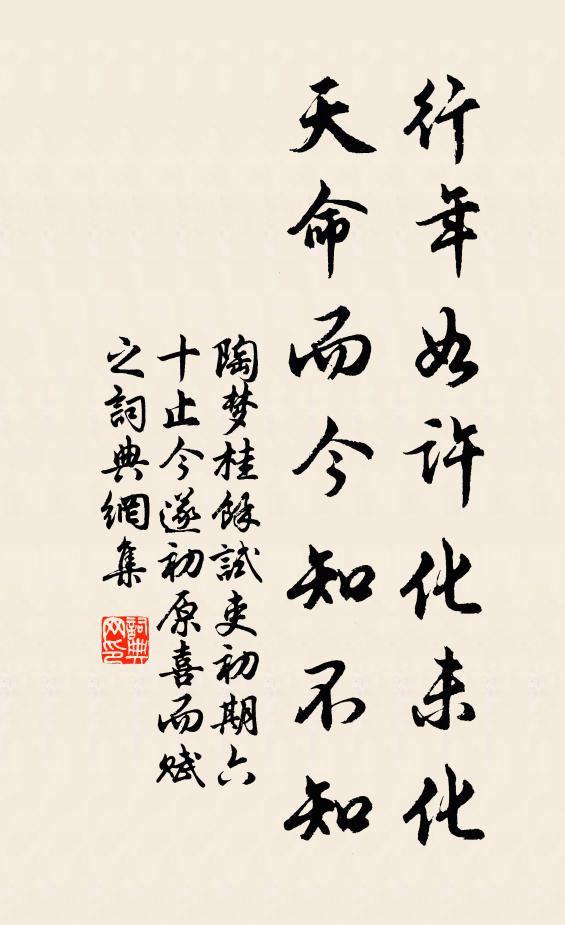 行年如許化未化
天命而今知不知
陶梦桂餘試吏初期六
十止今遂初原喜而赋
之詞典網集
詞典
网印